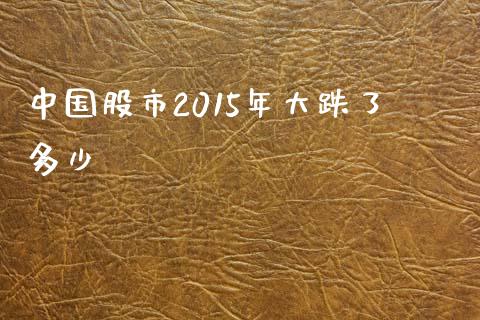 中国股市2015年大跌了
多少